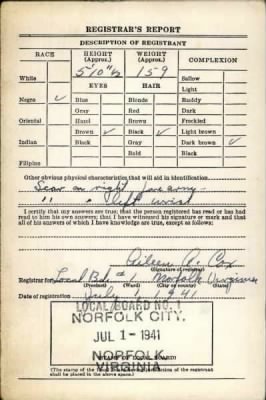 REGISTRAR'S REPORT
DESCRIPTION OF REGISTRANT
RACE HEIGHT (Approx.) WEIGHT (Approx.) COMPLEXION
5' 10 ½ 159
White Sallow
EYES HAIR Light
Negro ✓ Blue Blonde Ruddy
Gray Red Dark
Oriental Hazel Brown Freckled
Brown ✓ Black ✓ Light brown
Indian Black Gray Dark brown ✓
Bald Black
Filipino
Other obvious physical characteristics that will aid in identification
Scar on right forearm-
" " left wrist
I certify that my answers are true; that the person registered has read or has had
read to him his own answers; that I have witnessed his signature or mark and that
all of his answers of which I have knowledge are true, except as follows:
Aileen R. Cox
(Signature of registrar)
Registrar for Local Bd. # 1 Norfolk Virginia
(Precinct) (Ward) (City or county) (State)
Date of registration July 1, 1941
LOCAL BOARD NO. 1
NORFOLK CITY,
JUL 1 - 1941
NORFOLK
VIRGINIA
(STAMP OF LOCAL BOARD)
(The stamp of the
of the registrant
shall be placed in the above space.)